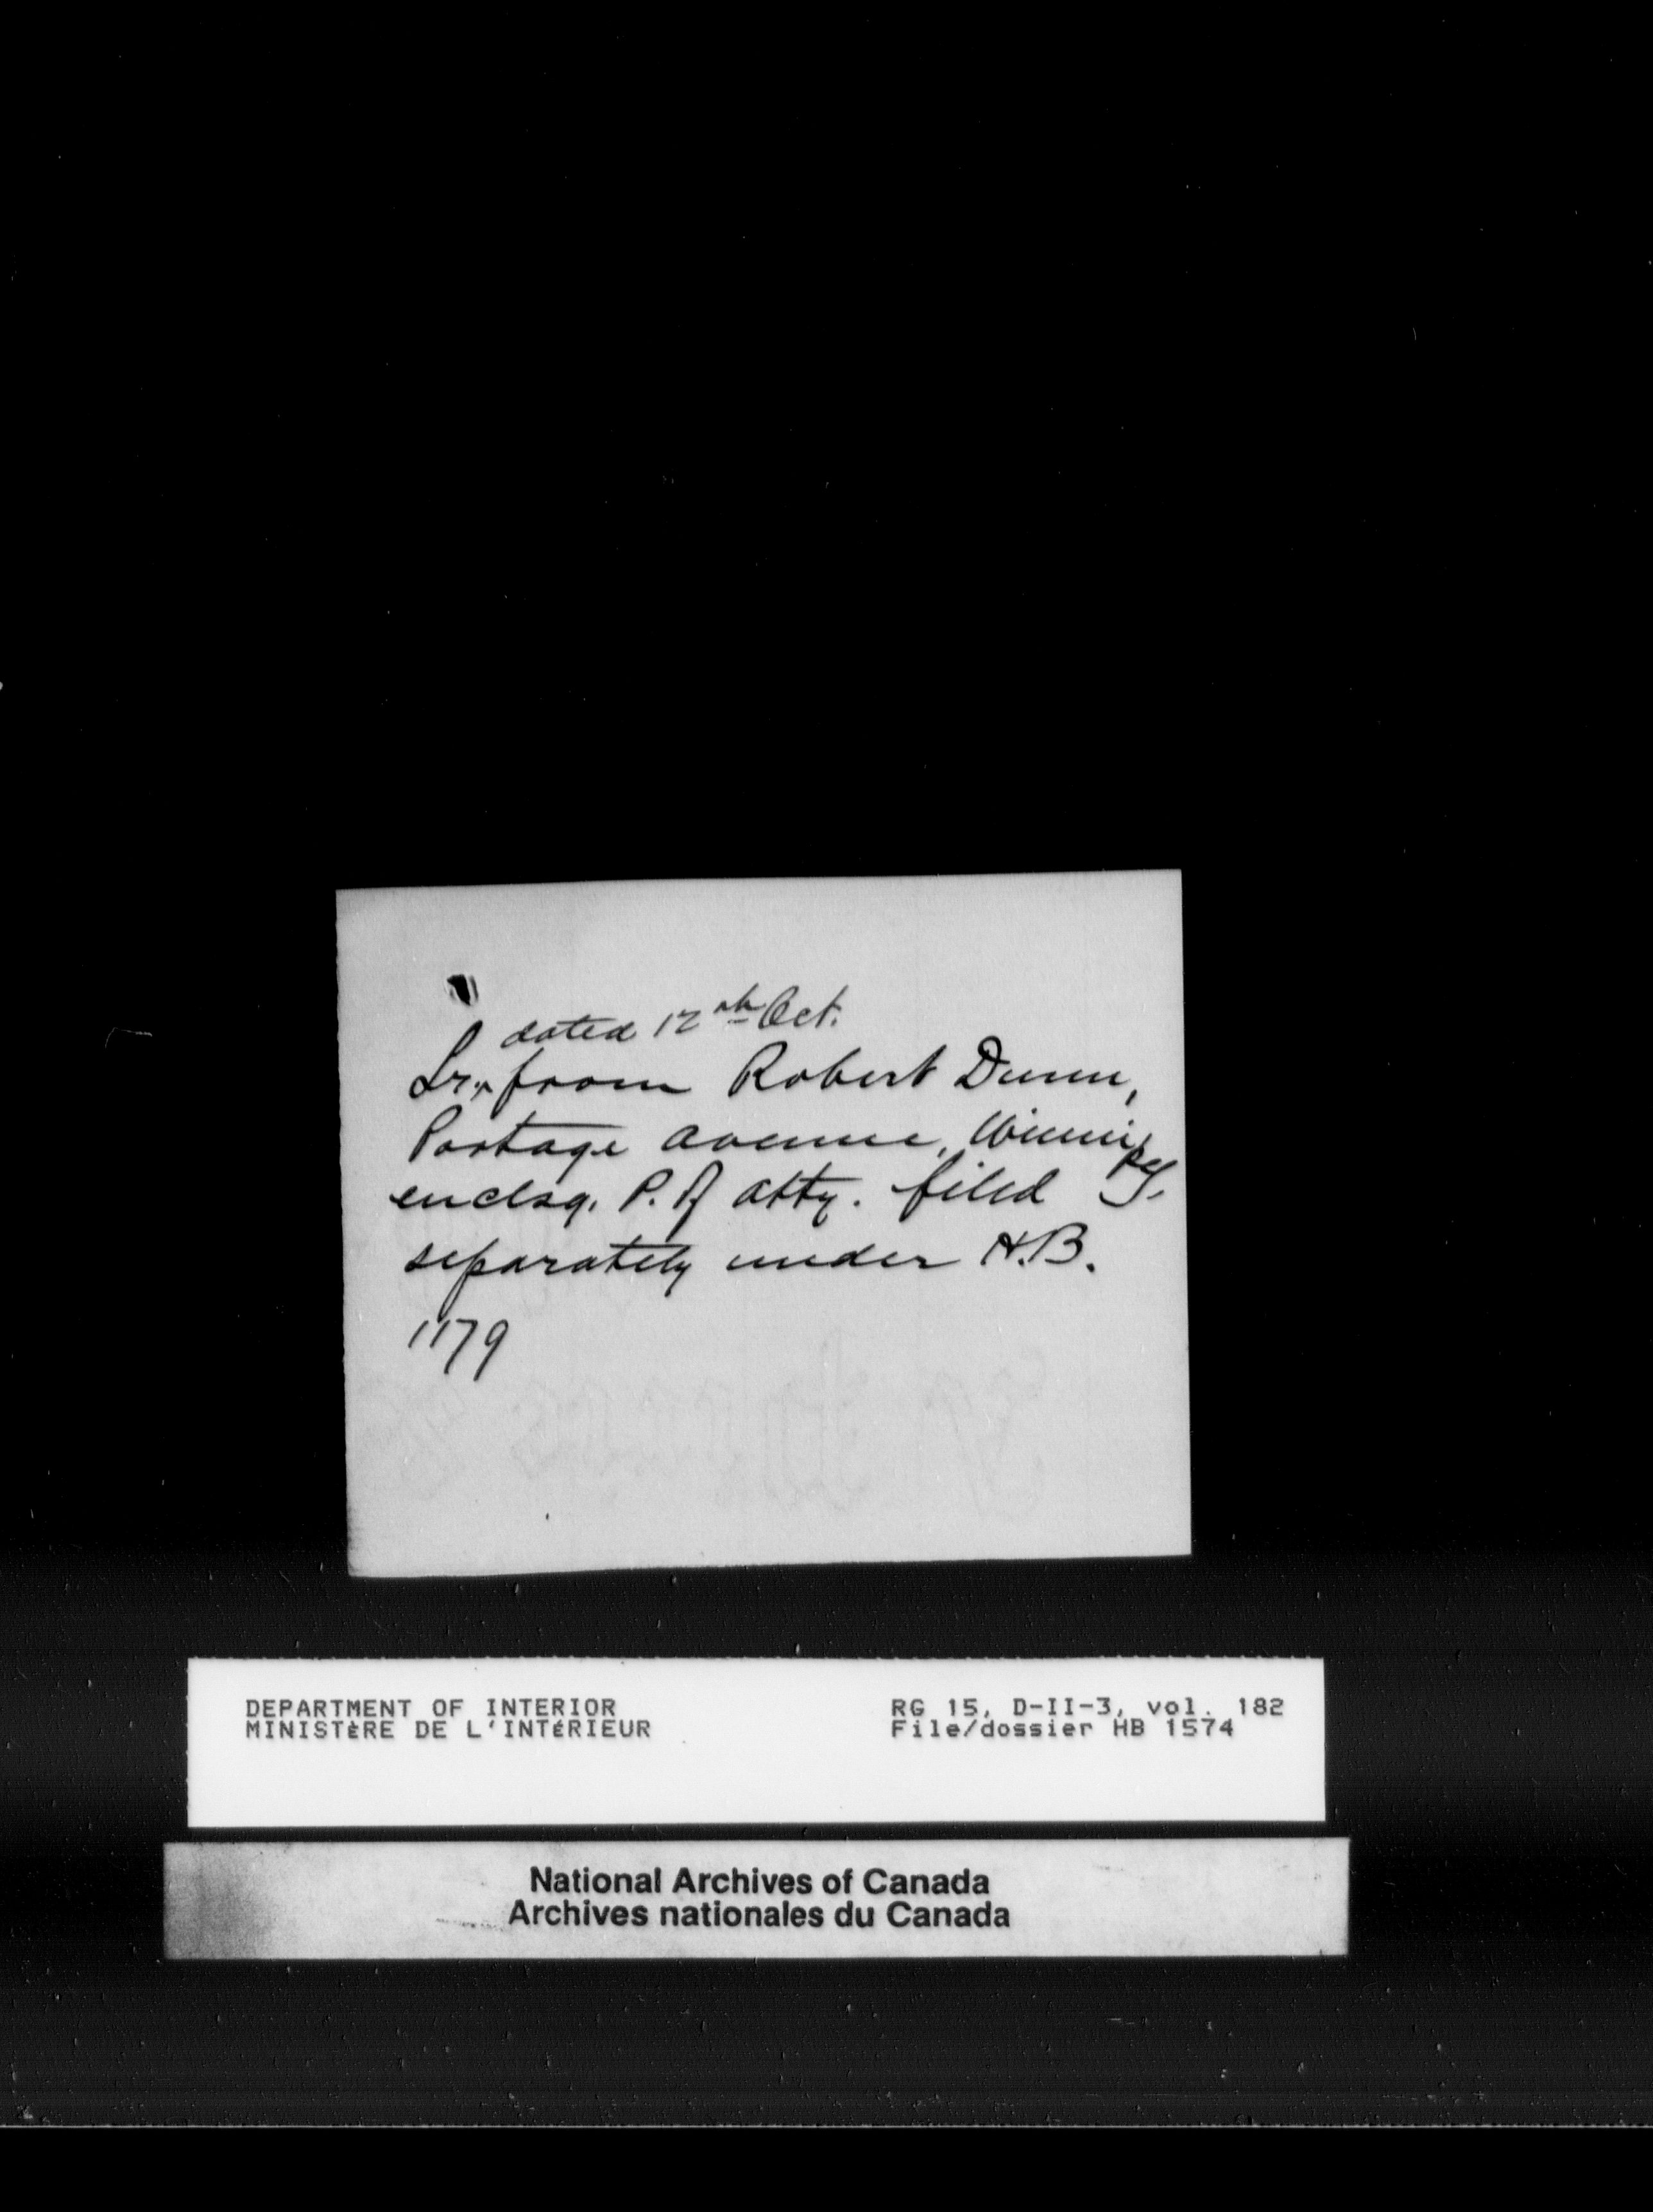 dated 12th Oct.
Lr. from Robert Dunn,
Portage Avenue, Winnipeg.
enclsg. P. of atty. filed
separately under H.B.
1179
DEPARTMENT OF INTERIOR
MINISTÈRE DE L'INTÉRIEUR
RG 15, D-II-3, vol. 182
File/dossier HB 1574
National Archives of Canada
Archives nationales du Canada